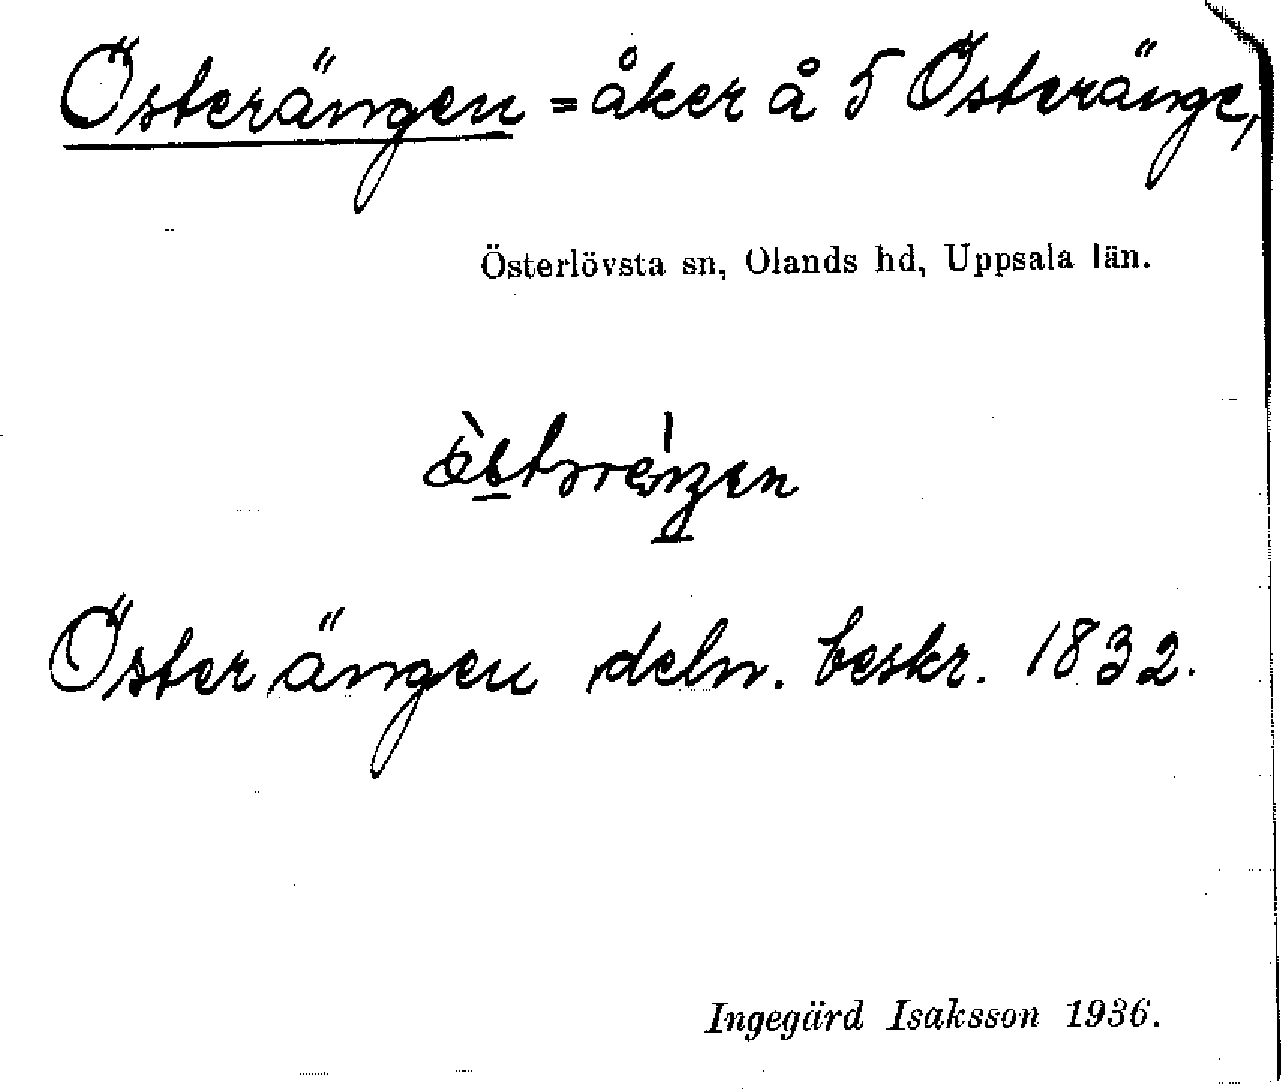 Österängen = åker å 5 Österänge,
Österlövsta sn, Olands hd, Uppsala län.
Österängen deln. beskr. 1832.
Ingegärd Isaksson 1936.